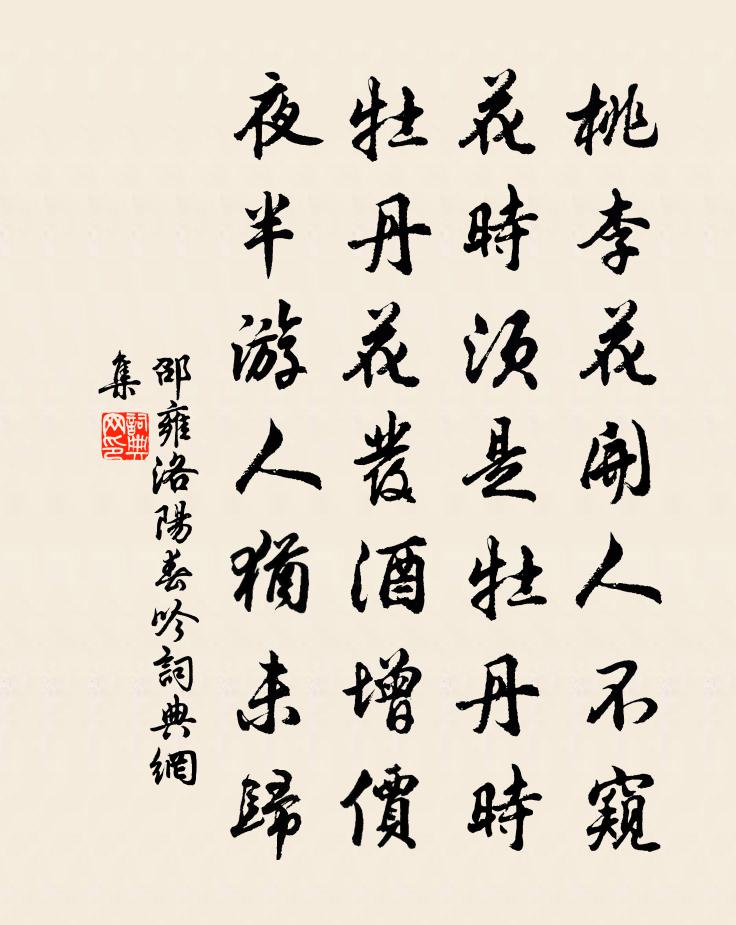 桃李花開人不窺
花時須是牡丹時
牡丹花發酒增價
夜半游人猶未歸
邵雍洛陽春吟詞典網
集
詞典
网印